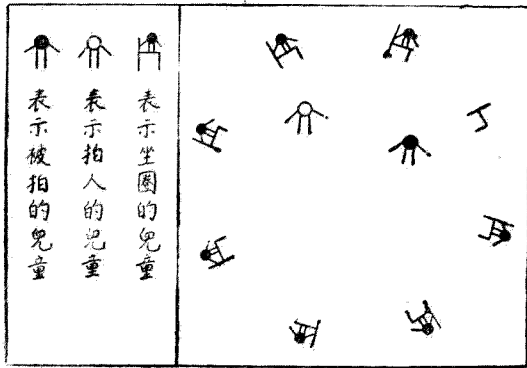 表示坐圈的兒童
表示拍人的兒童
表示被拍的兒童